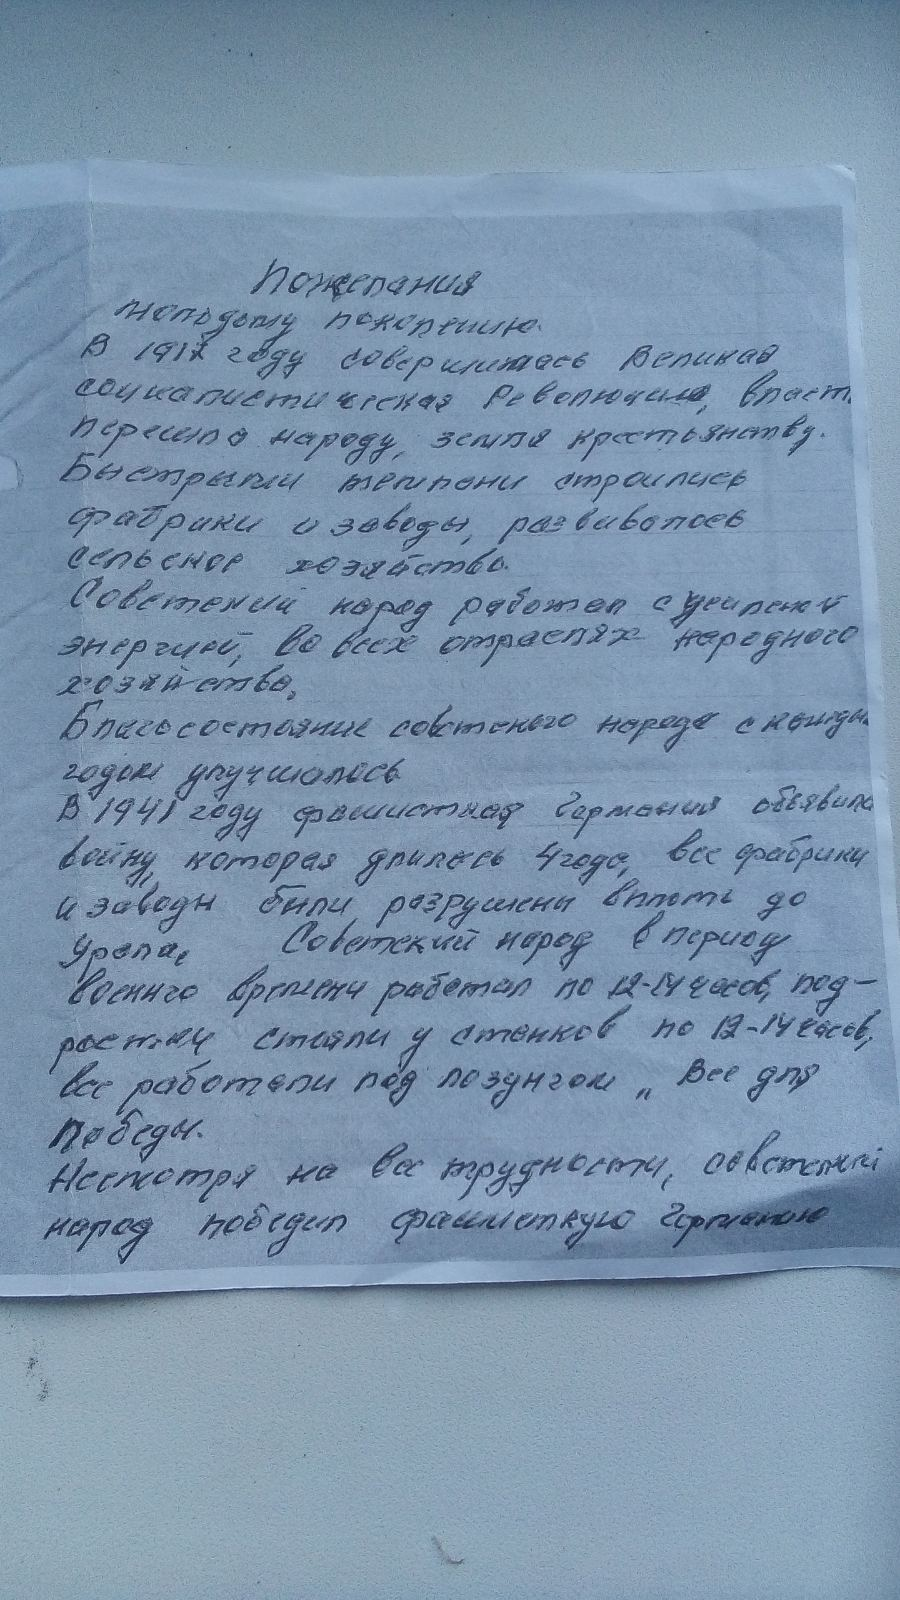 Пожелания
молодому поколению.
В 1917 году совершилась Великая
социалистическая Революция, власт
перешла народу, земля крестьянству.
Быстрыми темпами строились
фабрики и заводы, развивалось
сельское хозяйство.
Советский народ работал с
энергией, во всех отраслях народного
хозяйства.
Благосостояние советского народа с кажды
годом улучшалось
В 1941 году фашистная Германия объявила
войну, которая длилась 4 года, все фабрики
и заводы были разрушены вплоть до
Урала. Советский народ в период
военнго времени работал по 12-14 часов, под-
ростки стояли у станков по 12-14 часов,
все работали под лозунгом „ Все для
Победы.
Несмотря на все трудности, советский
народ победил фашисткую Германию